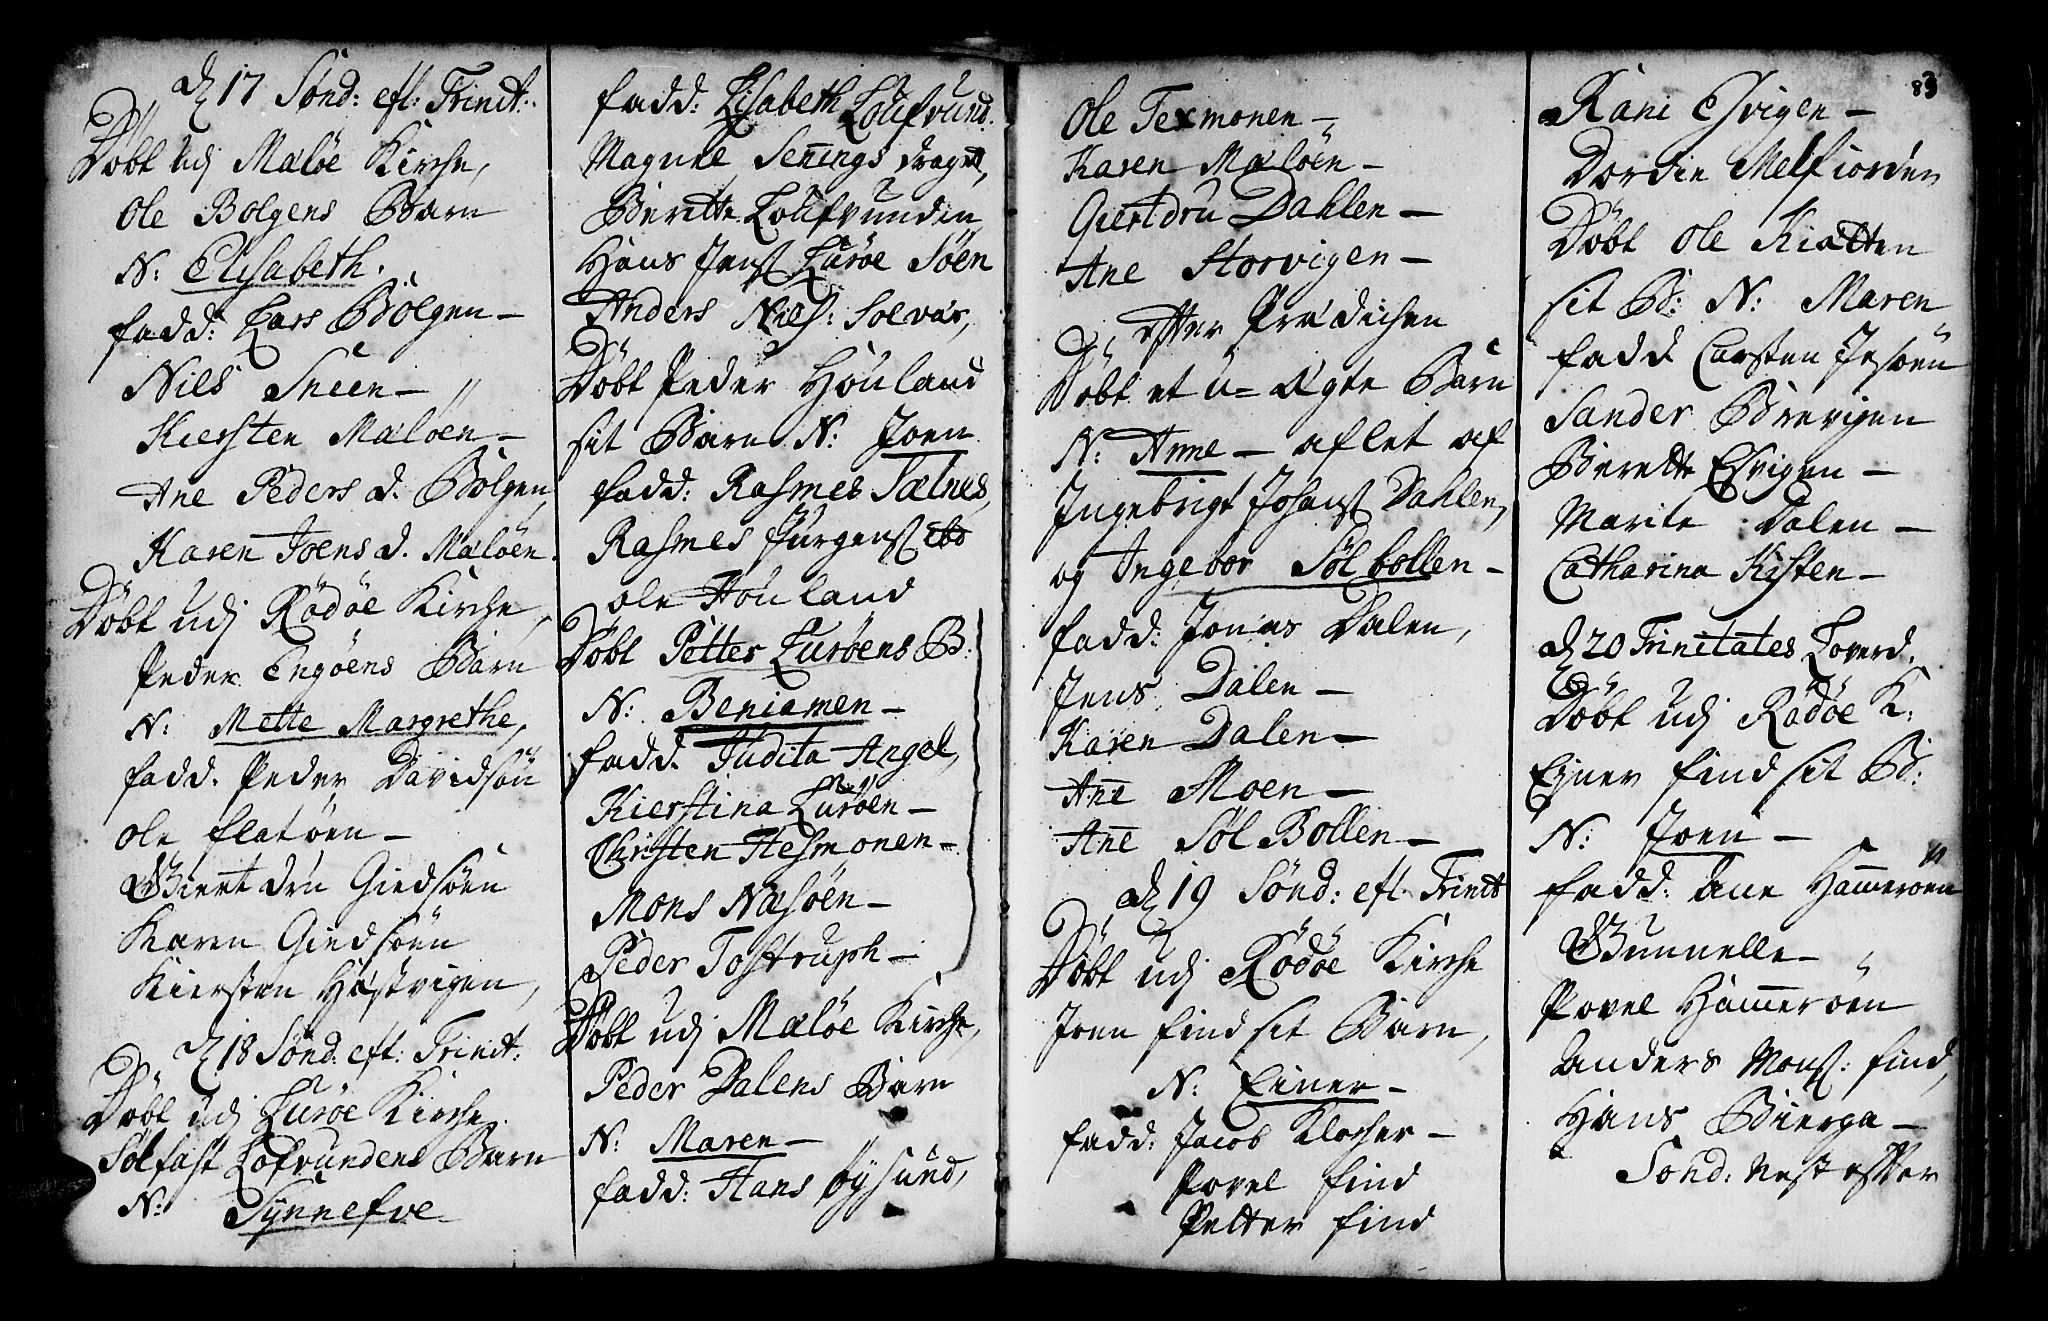 d 17 Sønd: eft: Trinit:
Døbt udj Maløe Kirche,
Ole Bolgens Barn
N: Elisabeth.
fadd: Lars Bolgen –
Niels Sneen –
Kiersten Maløen –
Ane Peders d. Bolgen,
Karen Joens d. Maløen.
Døbt udj Rødøe Kirche,
Peder Engøens Barn
N: Mette Margrethe,
fadd. Peder Davidsøn
Ole flatøen –
Giertdru Giedsøen
Karen Giedsøen
Kiersten Hästvigen,
d 18 Sønd: eft: Trinit:
Døbt udj Lurøe Kirche.
Sølfast Lofvundens Barn
N: Synnefve
fadd: Lisabeth Loufvund.
Magnile Sennings draget,
Beritte Loufvunden
Hans Jens Lurøe Søen
Anders Niels: Solvær,
Døbt Peder Houland
sit Barn N: Joen
fadd: Rasmes Selnes,
Rasmes Jürgens ibd
Ole Houland
Døbt Petter Lurøens B:
N: Beniamen –
fadd. Judita Angel,
Kierstina Lurøen –
Christen Hesmonen –
Mons Næsøen –
Peder Tostruph –
Døbt udj Maløe Kirche,
Peder Dalens Barn
N: Maren –
fadd: Hans Øysund,
Ole Texmonen –
Karen Maløen –
Giertdru Dahlen –
Ane Storvigen –
Efter Prædichen
Døbt et u= ægte Barn
N: Anne – aflet af
Ingebrigt Johans Dahlen,
og Ingebor Sølbollen –
fadd: Jonas Dalen,
Jens Dalen –
Karen Dalen –
Ane Moen –
Ane Søl Bollen –
d 19 Sønd: eft: Trinit
Døbt udj Rødøe Kirche
Joen find sit Barn,
N: Einer –
fadd: Jacob Klocher –
Povel find
Petter find
83
Rani Esvigen –
Dordie Melfiorden
Døbt Ole Kiatten
sit B: N: Maren
fadd Carsten Jesøen
Sander Brevigen
Berette Esvigen –
Marite Dalen –
Catharina Kisten –
d 20 Trinitates Loverd.
Døbt udj Rødøe K:
Ejner find sit B:
N: Joen –
fadd: Ane Hammerøen
Gunnelle –
Povel Hammerøen
Anders Mons: find,
Hans Bierga –
Sønd: Nest efter